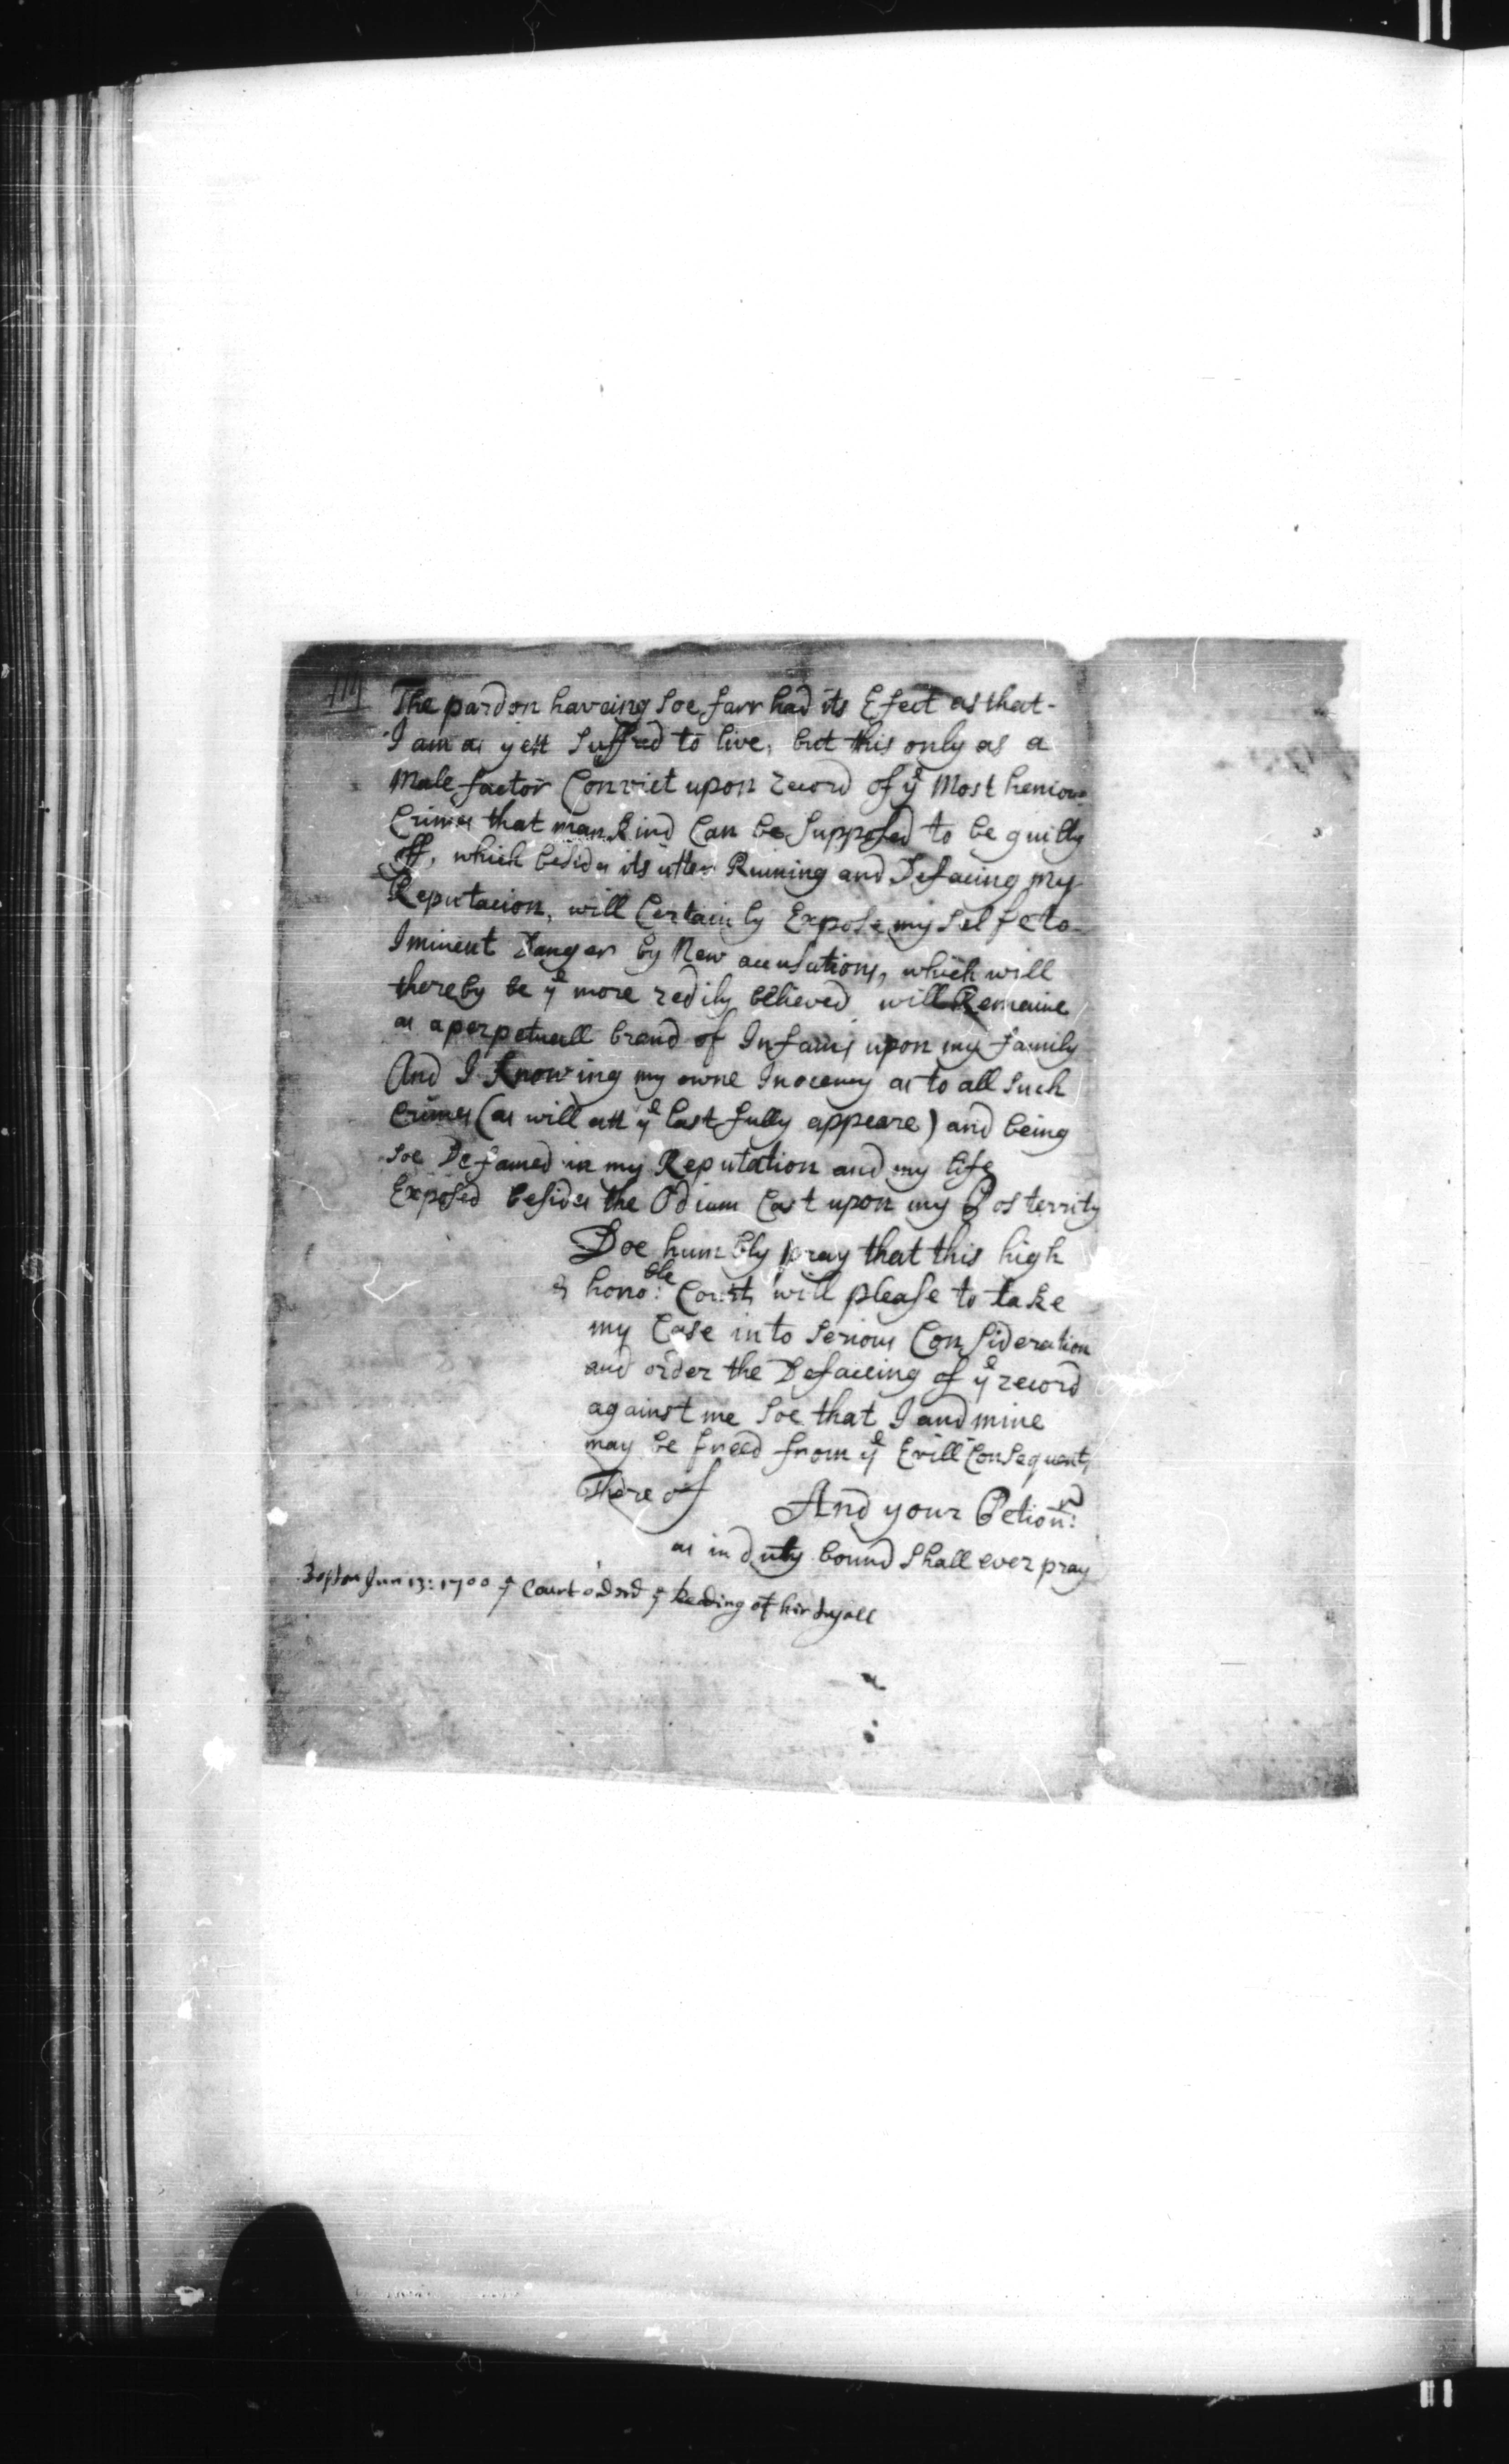 The pardon haveing soe farr had its Efect as that-
I am as yett suffred to live, but this only as a
Malefactor Convict upon record of yͤ Most heniou
Crimes that mankind Can be supposed to be guilty
off, which besides its utter Ruining and Defacing my
Reputacion, will Certainly Expose my selfe to
Iminent Danger by New accusations, which will
thereby be yͤ more redily believed will Remaine
as a perpetuall brand of Infamy upon my family
And I Knowing my owne Inocency as to all such
Crimes (as will att yͤ last fully appeare) and being
soe Defamed in my Reputation and my life
Exposed besides the Odium Cast upon my Posterrity
Doe humbly pray that this high
& honoᵇˡᵉ: Court will please to take
my Case into serious Consideration
and order the Defaceing of yͤ record
against me soe that I and mine
may be freed from yͤ Evill Consequents
Thereof And your Petionʳ:
as in duty bound shall ever pray
Boston Jun 13: 1700 yͤ Court ordrd yͤ Reading of hir tryall